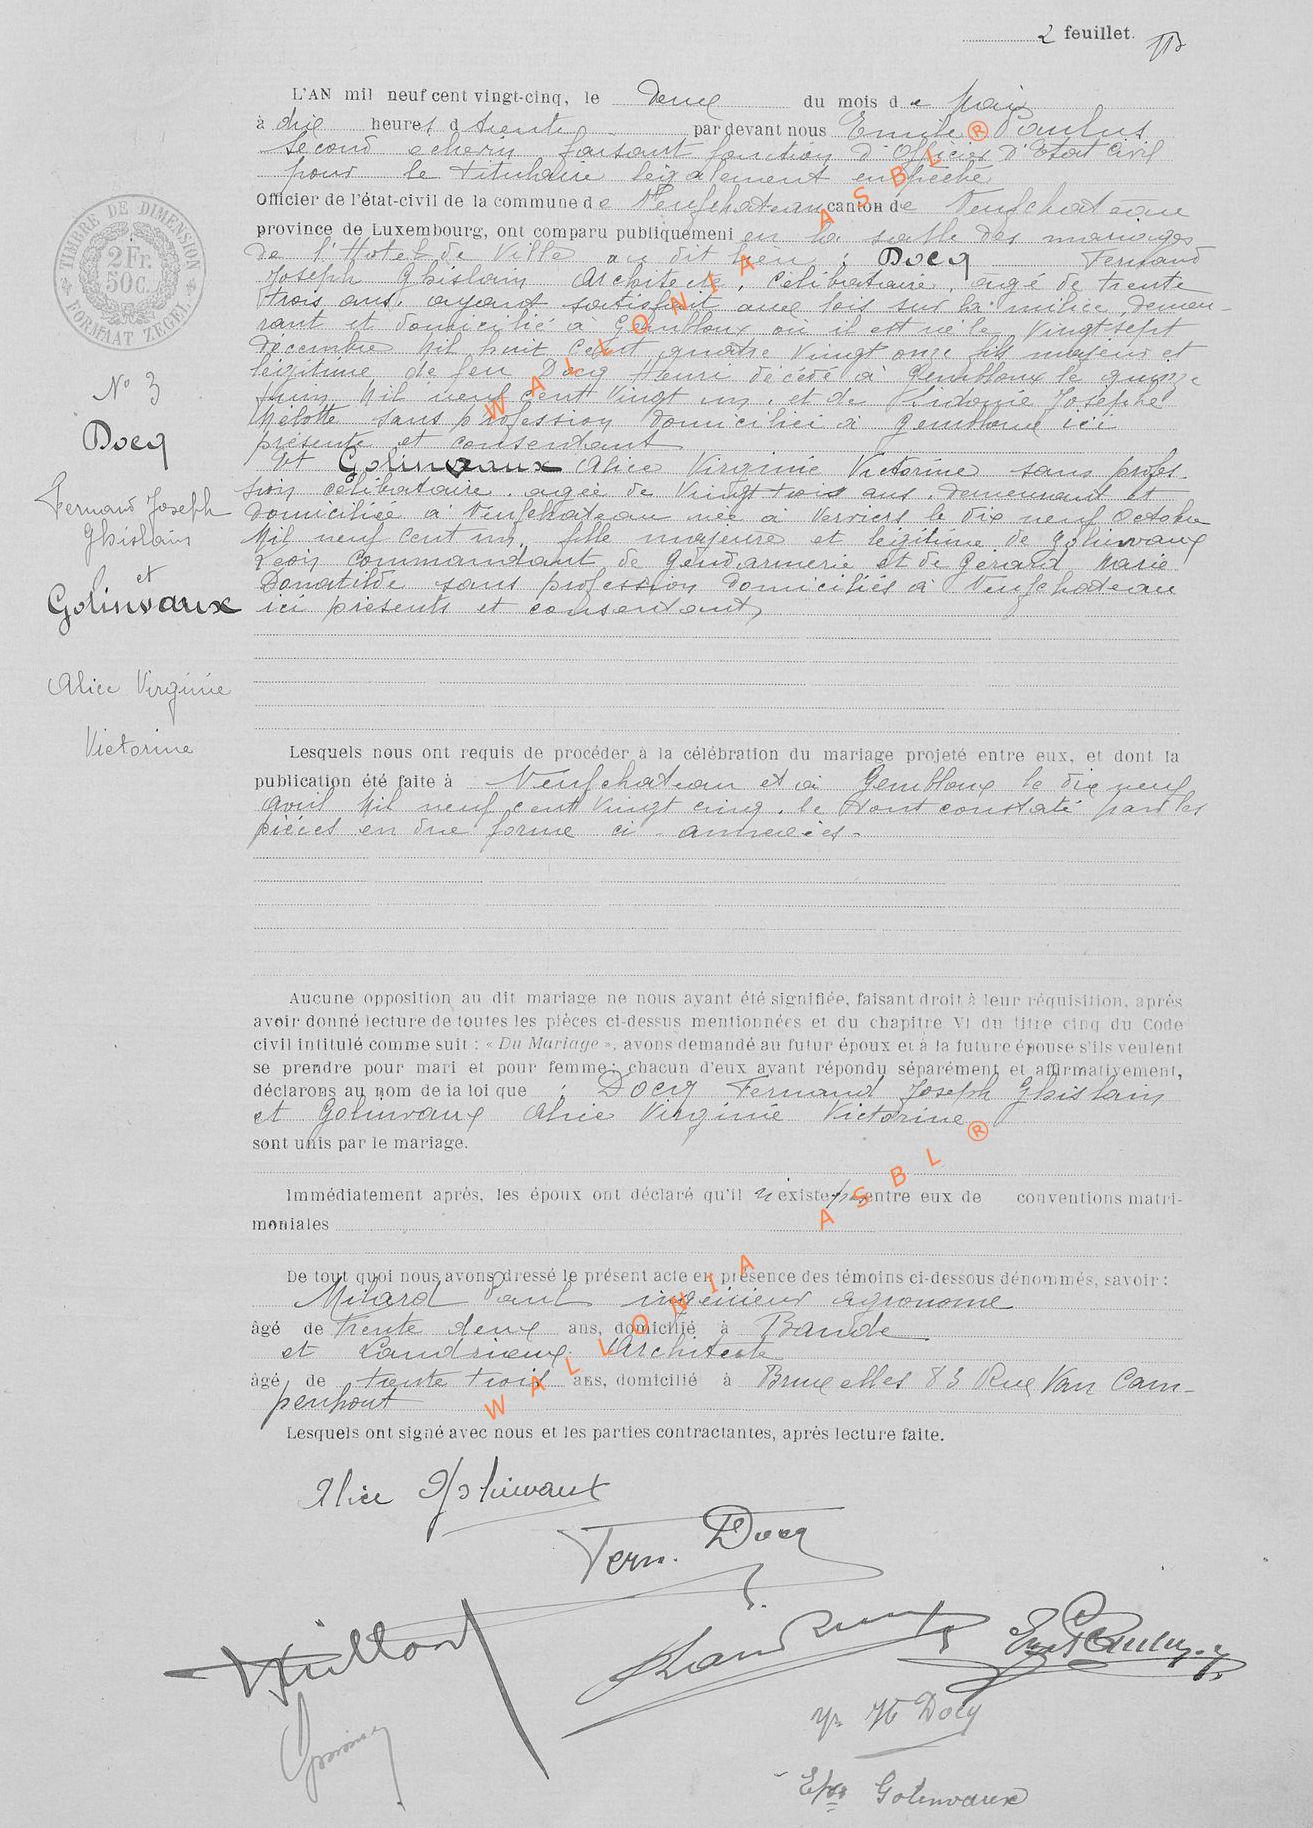 2 feuillet.
L'AN mil neuf cent vingt-cinq, le deux du mois de Mai
à dix heures trente par devant nous Emile Paulus
second échevin faisant fonction d'Officier d'Etat Civil
pour le titulaire légalement empêché
Officier de l'état-civil de la commune de Neufchateau canton de Neufchateau
province de Luxembourg, ont comparu publiquement en la salle des mariages
de l'Hotel de Ville au dit lieu : Docq Fernand
Joseph Ghislain Architecte, célibataire, agé de trente
trois ans, ayant satisfait aux lois sur la milice, demeu-
rant et domicilié à Gembloux où il est né le vingt sept
decembre Mil huit cent quatre vingt onze fils majeur et
légitime de feu Docq Henri décédé à Gembloux le quinze
juin Mil neuf cent vingt un, et de Ludovie Josèphe
Melotte sans profession domiciliée à Gembloux ici
présente et consentant
TIMBRE DE DIMENSION
2 Fr.
50 C.
FORMAAT ZEGEL
N° 3
Docq
Fernand Joseph
Ghislain
et
Golinvaux
Alice Virginie
Victorine
Et Golinvaux Alice Virginie Victorine sans profes-
sion célibataire, agée de Vingt trois ans, demeurant et
domiciliée à Neufchateau née à Verviers le dix neuf Octobre
Mil neuf cent un, fille majeure et légitime de Golinvaux
Léon Commandant de Gendarmerie et de Gérard Marie
Donatilde sans profession domiciliés à Neufchateau
ici présents et consentant,
Lesquels nous ont requis de procéder à la célébration du mariage projeté entre eux, et dont la
publication été faite à Neufchateau et à Gembloux le dix neuf
Avril Mil neuf cent vingt cinq, le tout constaté par les
pièces en due forme ci-annexées.
Aucune opposition au dit mariage ne nous ayant été signifiée, faisant droit à leur réquisition, après
avoir donné lecture de toutes les pièces ci-dessus mentionnées et du chapitre VI du titre cinq du Code
civil intitulé comme suit : « Du Mariage », avons demandé au futur époux et à la future épouse s'ils veulent
se prendre pour mari et pour femme; chacun d'eux ayant répondu séparément et affirmativement,
déclarons au nom de la loi que : Docq Fernand Joseph Ghislain
et Golinvaux Alice Virginie Victorine
sont unis par le mariage.
Immédiatement après, les époux ont déclaré qu'il n'existe pas entre eux de conventions matri-
moniales
De tout quoi nous avons dressé le présent acte en présence des témoins ci-dessous dénommés, savoir :
Milard Paul ingénieur agronome
âgé de trente deux ans, domicilié à Bande
et Landrieux Architecte
âgé de trente trois ans, domicilié à Bruxelles 83 Rue Van Cam-
penhout
Lesquels ont signé avec nous et les parties contractantes, après lecture faite.
Alice Golinvaux
Fern. Docq
Docq
Golinvaux
WALLONIA ASBL ®
WALLONIA ASBL ®